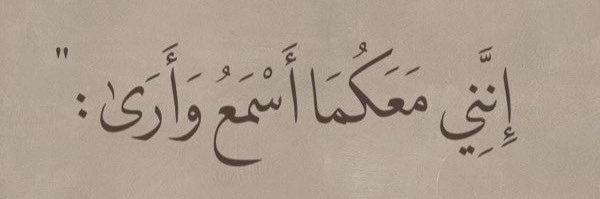 إِنَّنِي مَعَكُمَا أَسْمَعُ وَأَرَىٰ : "